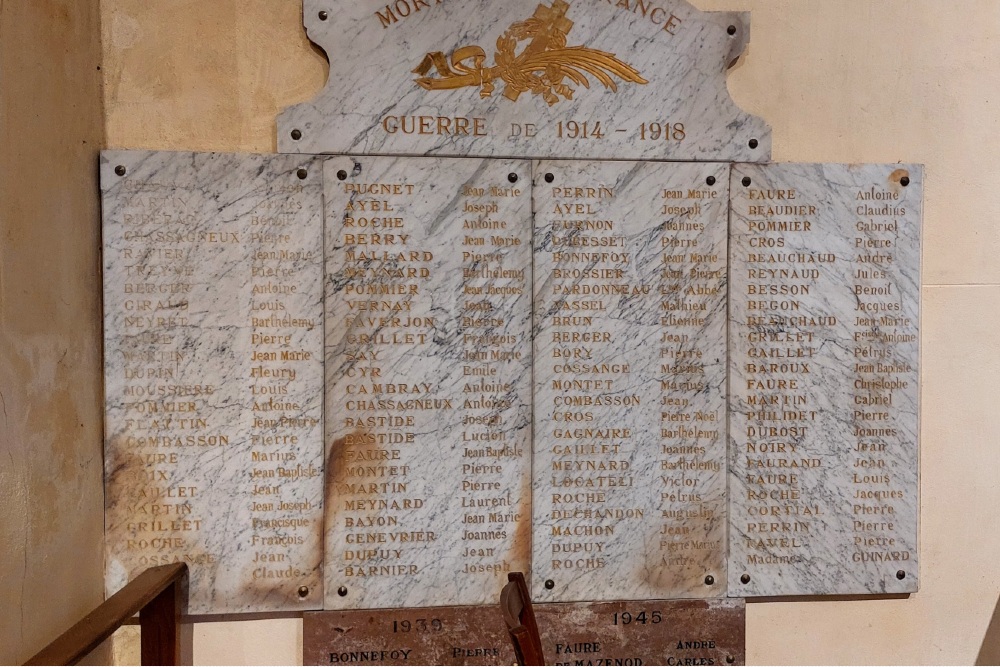 GUERRE DE 1914 - 1918
CHASSAGNEUX Pierre
Jean Marie
Pierre
BERGER Antoine
GIRAUD Louis
NEYRET Barthélemy
Pierre
MARTIN Jean Marie
DUPIN Fleury
MOUSSIERE Louis
POMMIER Antoine
FLATTIN Jean Pierre
COMBASSON Pierre
FAURE Marius
Jean Baptiste
GAILLET Jean
MARTIN Jean Joseph
GRILLET Francisque
ROCHE François
COSSANGE Jean
Claude
BUGNET Jean Marie
AYEL Joseph
ROCHE Antoine
BERRY Jean Marie
MALLARD Pierre
MEYNARD Barthélemy
POMMIER Jean Jacques
VERNAY Jean
FAVERJON Pierre
GRILLET François
SAY Jean Marie
CYR Emile
CAMBRAY Antoine
CHASSAGNEUX Antoine
BASTIDE Joseph
BASTIDE Lucien
FAURE Jean Baptiste
MONTET Pierre
MARTIN Pierre
MEYNARD Laurent
BAYON Jean Marie
GENEVRIER Joannes
DUPUY Jean
BARNIER Joseph
PERRIN Jean Marie
AYEL Joseph
Joannes
Pierre
BONNEFOY Jean Marie
BROSSIER Jean Pierre
PARDONNEAU
VASSEL Mathieu
BRUN Etienne
BERGER Jean
BORY Pierre
COSSANGE Marius
MONTET Marius
COMBASSON Jean
CROS Pierre Noël
GAGNAIRE Barthélemy
GAILLET Joannes
MEYNARD Barthélemy
LOCATELI Victor
ROCHE Pétrus
DEGRANDON Augustin
MACHON Jean
DUPUY Pierre Marius
ROCHE André
FAURE Antoine
BEAUDIER Claudius
POMMIER Gabriel
CROS Pierre
BEAUCHAUD André
REYNAUD Jules
BESSON Benoit
BEGON Jacques
BEAUCHAUD Jean Marie
GRILLET Antoine
GAILLET Pétrus
BAROUX Jean Baptiste
FAURE Christophe
MARTIN Gabriel
PHILIDET Pierre
DUBOST Joannes
NOIRY Jean
FAURAND Jean
FAURE Louis
ROCHE Jacques
CORTIAL Pierre
PERRIN Pierre
FAVEL Pierre
Madame GUINNARD
1939 1945
BONNEFOY Pierre
FAURE André
DE MAZENOD CARLES